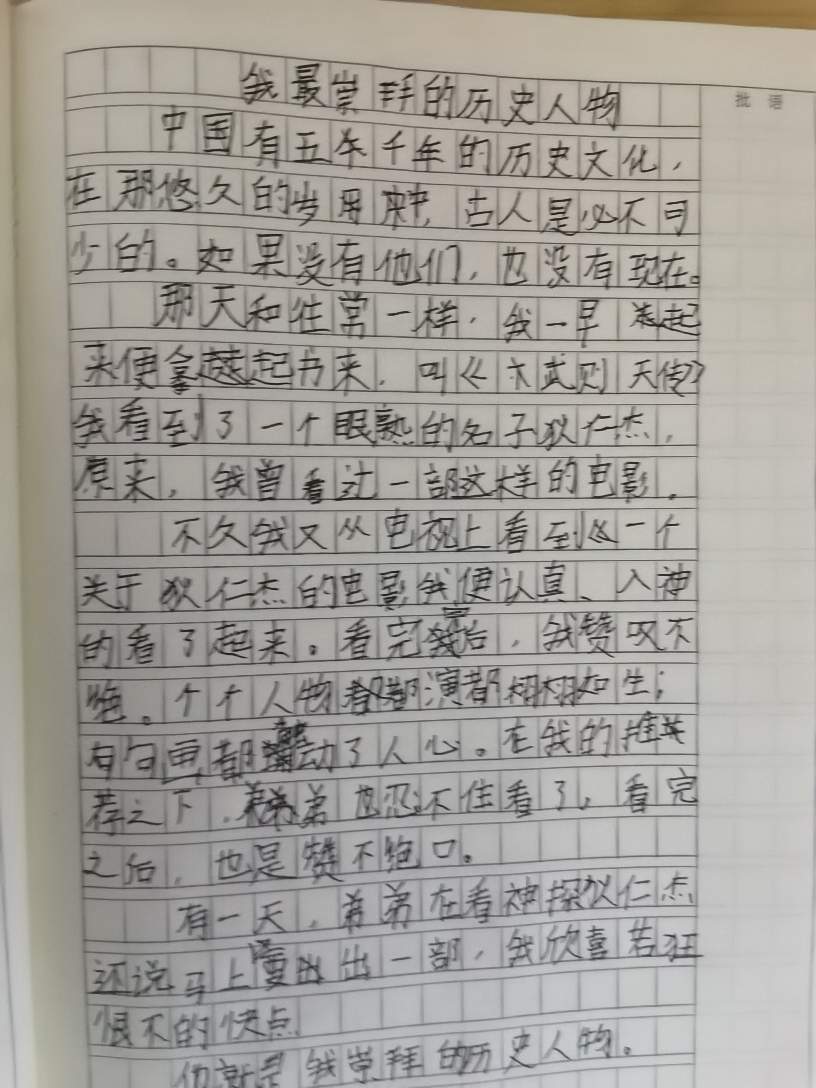 我最崇拜的历史人物
批 语
中国有五千年的历史文化，
在那悠久的岁月中，古人是必不可
少的。如果没有他们，也没有现在。
那天和往常一样，我一早起
来便拿起书来，叫《武则天传》
我看到了一个眼熟的名子狄仁杰，
原来，我曾看过一部这样的电影。
不久我又从电视上看到一个
关于狄仁杰的电影我便认真、入神
的看了起来。看完后，我赞叹不
绝。个个人物都演都栩栩如生；
句句画都动了人心。在我的推
荐之下，弟弟也忍不住看了，看完
之后，也是赞不绝口。
有一天，弟弟在看神探狄仁杰
还说马上要出一部，我欣喜若狂
恨不的快点
他就是我崇拜的历史人物。